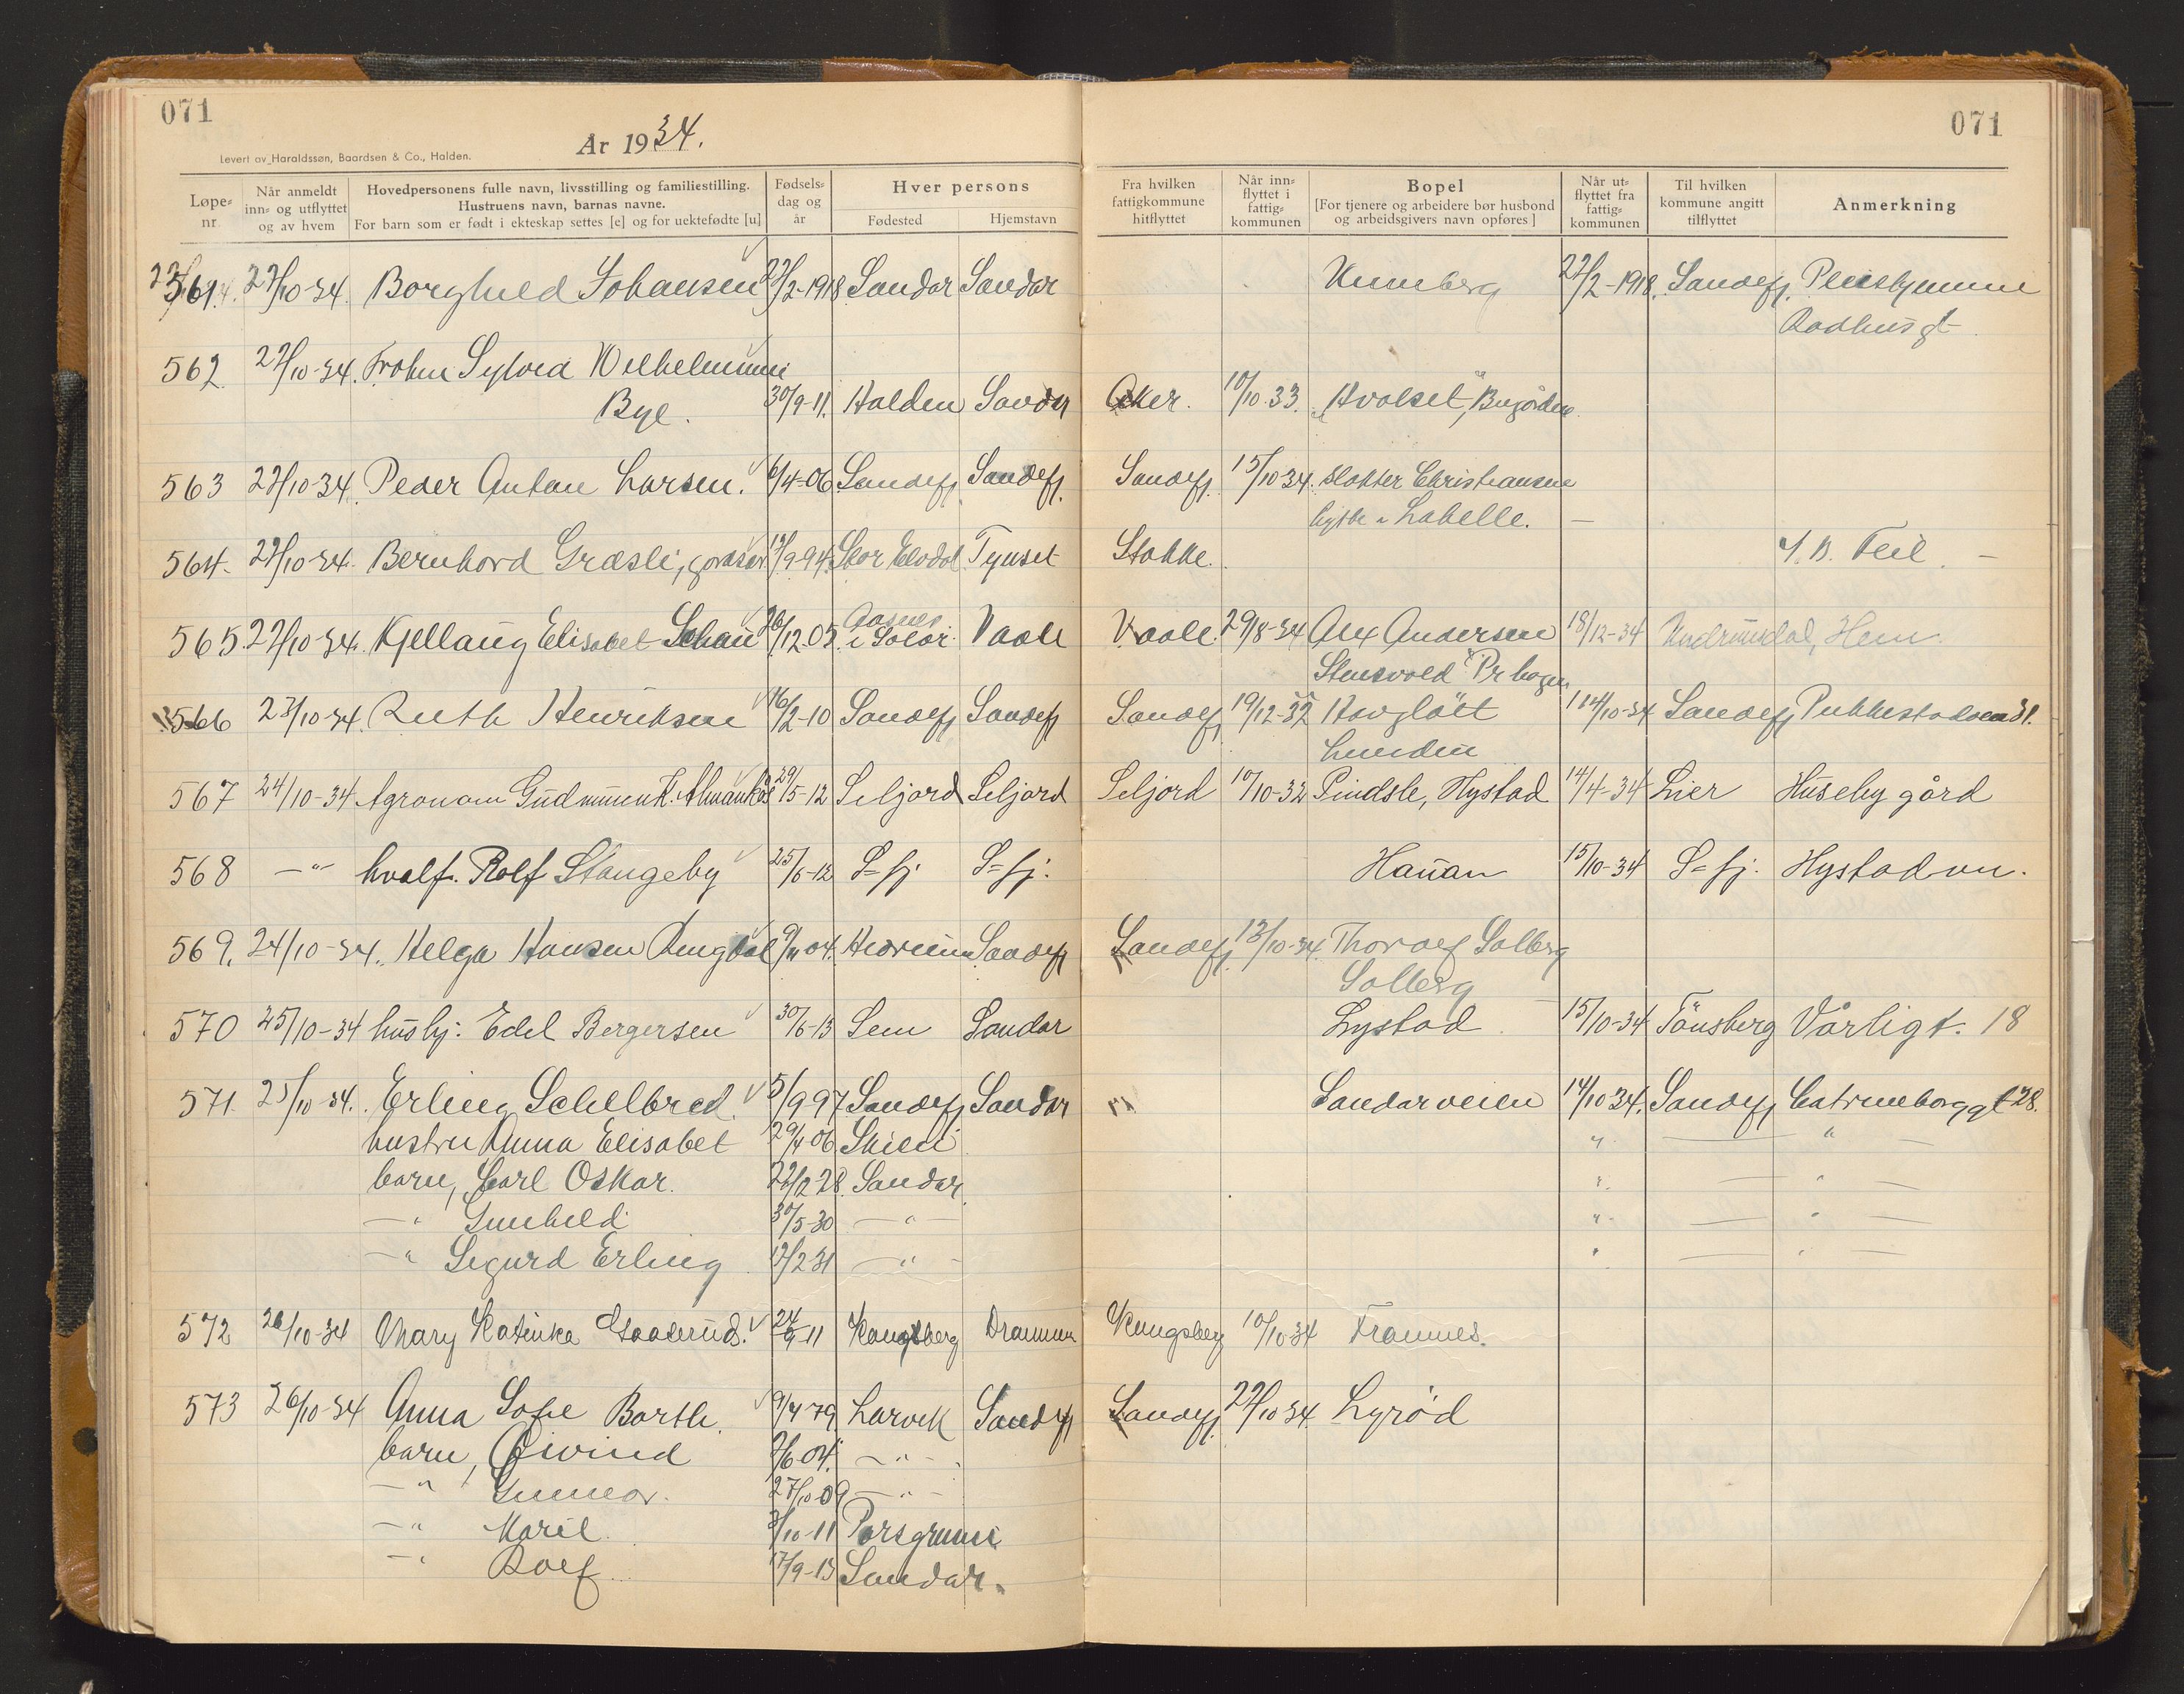 071
071
År 1934.
Levert av Haraldssøn, Baardsen & Co., Halden.
Løpe-nr. Når anmeldt inn- og utflyttet og av hvem Hovedpersonens fulle navn, livsstilling og familiestilling. Hustruens navn, barnas navne. For barn som er født i ekteskap settes [e] og for uektefødte [u] Fødsels-dag og år Hver persons Fødested Hjemstavn Fra hvilken fattigkommune hitflyttet Når inn-flyttet i fattig-kommunen Bopel [For tjenere og arbeidere bør husbond og arbeidsgivers navn opføres] Når ut-flyttet fra fattig-kommunen Til hvilken kommune angitt tilflyttet Anmerkning
561. 22/10-34. Borghild Johansen 22/2-1918 Sandar Sandar Unneberg 22/2-1918. Sandefj. Pleiehjemme
Radhusgt.
562 22/10-34. Sylvia Wilhelmine
Bye. 30/9-11. Halden Sandar Aker. 10/10-33. "Hvalset", Bugården
563 22/10-34. Peder Anton Larsen. 6/4-06 Sandefj. Sandefj. Sandefj. 15/10-34. Slakter Christiansens
hytte v Labelle. —
564. 22/10-34. Bernhard Græsli, 12/9-94. Stor Elvdal Tynset Stokke. Feil. —
565. 22/10-34. Kjellaug Elisabet Schau 26/12-05 Aasnes
i Solør. Vaale Vaale. 29/8-34 Alex Andersen 18/12-34 Undrumsdal, Hem.
Stensvold
566 23/10-34. Ruth Henriksen 16/2-10 Sandefj Sandefj Sandefj 19/12-32 Havgløtt 14/10-34 Sandefj Pukkestadveien 31.
Lunden
567 24/10-34 Agronom Gudmund K. Almankås 29/5-12 Seljord Seljord Seljord 10/10-32 Pindsle, Hystad 14/4-34 Lier Huseby gård
568 —"— hvalf. Rolf Stangeby 25/6-12 S=fj. S=fj. Hauan 15/10-34 S=fj. Hystadvn.
569. 24/10-34. Helga Hansen Ringdal 9/11 04. Hedrum Sandefj Sandefj. 13/10-34. Thorolf Solberg
Solberg
570 25/10-34 hushj: Edel Bergersen 30/6-13 Sem Sandar Lystad 15/10-34 Tönsberg Vårligt. 18
571. 25/10-34. Erling Schelbred. 5/9-97 Sandefj Sandar Sandarveien 14/10 34. Sandefj Catrineborggt 28.
hustru Anna Elisabet 29/4-06 Skien " — " —
barn, Carl Oskar. 22/2 28. Sandar " — " —
—" Gunhild 30/5-30 —"— " — " —
—" Sigurd Erling 12/2 31 —"— " — " —
572 26/10-34 Mary Katinka Gaaserud. 24/9-11 Kongsberg Drammen Kongsberg 10/10 34 Framnes.
573 26/10-34 Anna Sofie Barth. 9/4-79 Larvik Sandefj Sandefj. 22/10 34. Lyrød
barn, Øivind 2/6-04. —"—
—" Gunnar. 27/10-09 —"—
—" Maril. 3/10-11 Porsgrunn
—" Rolf 17/9-13 Sandar.